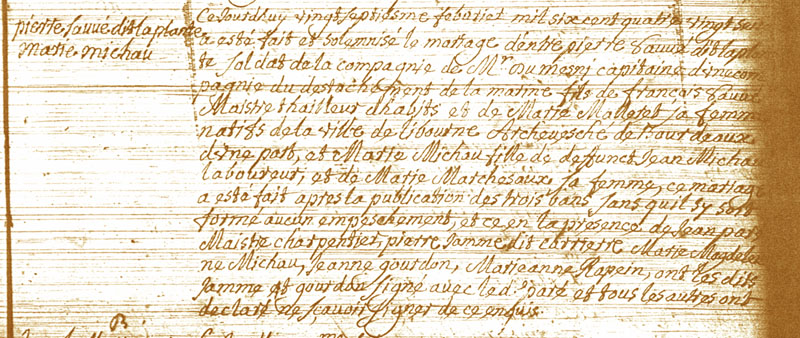 pierre sauvé dit laplante
marie michau
Ce Jourdhuy vingt septiesme feburier mil six cent quatre vingt
a esté fait et solemnisé le mariage dentre pierre sauvé dit laplan
te soldat de la compagnie de Mr Dumesni capitaine dune com
pagnie du destachement de la marine fils de françois sauvé
Maistre thailleur dhabits et de Marie Malleret sa femme
natifs de la ville de libourne Archevesche de Bourdeaux
dune part, et Marie Michau fille de deffunct Jean Michau
laboureur, et de Marie Marchesaux sa femme, ce mariage
a esté fait apres la publication des trois bans sans quil sy soit
formé aucun empeschement, et ce en la presence de Jean paré
Maistre charpentier, pierre Jamme dit carriere Marie Magdelei
ne Michau, Jeanne gourdon, Marieanne Rapein, ont lesdits
Jamme et gourdon signé avec led. paré et tous les autres ont
declaré ne scavoir signer de ce enquis